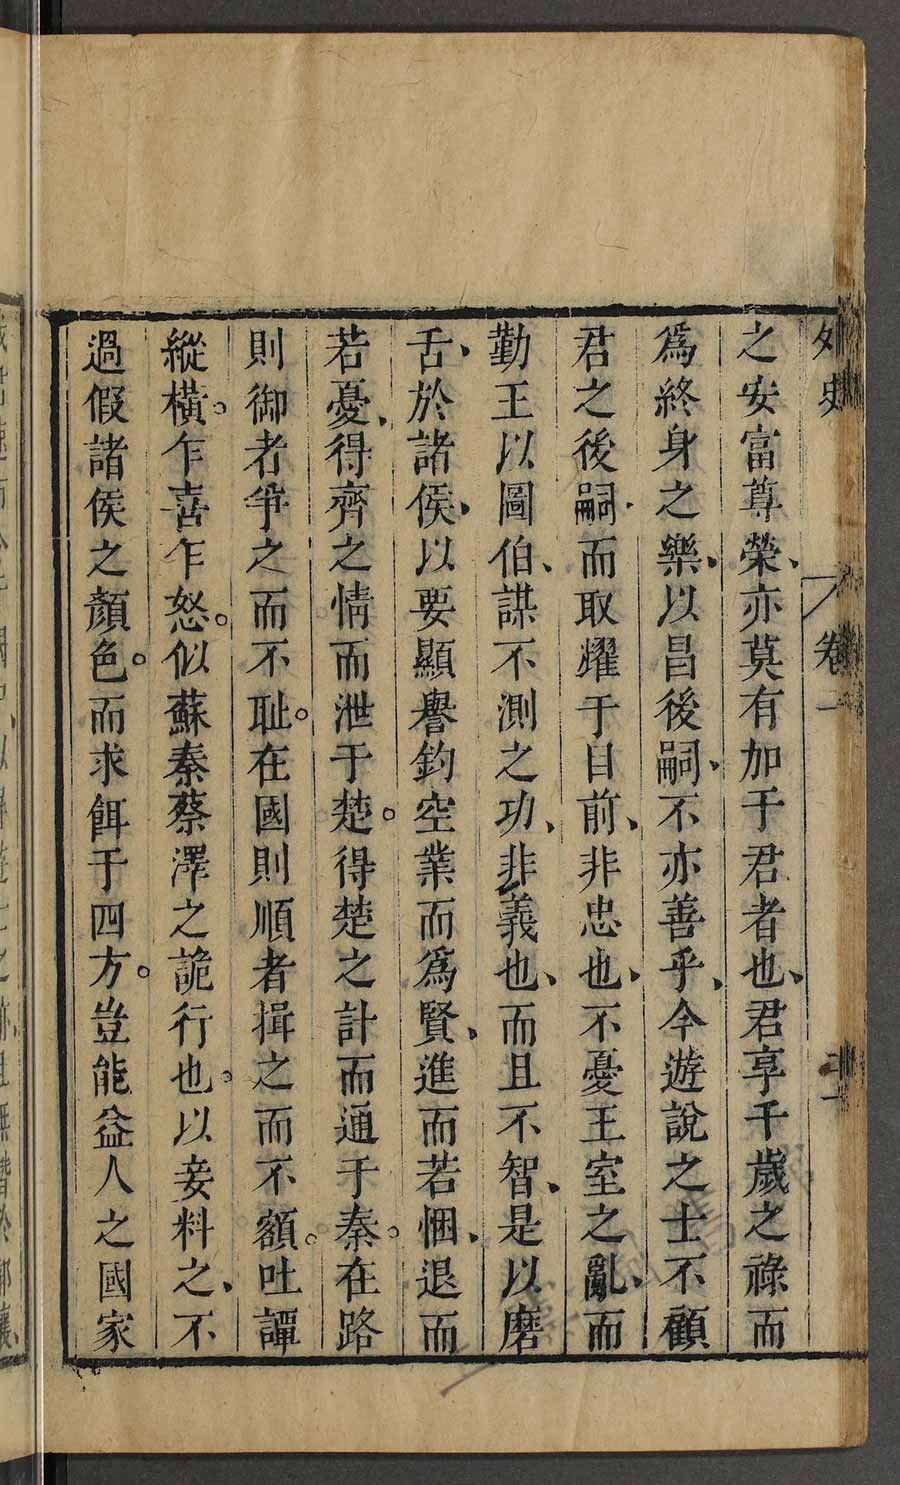 外史 卷一
之安富尊榮、亦莫有加于君者也、君享千歲之祿而
爲終身之樂、以昌後嗣、不亦善乎、今遊說之士不顧
君之後嗣、而取耀于目前、非忠也、不憂王室之亂、而
勤王以圖伯、謀不測之功、非義也、而且不智、是以磨
舌、於諸侯、以要顯譽鈞空業而爲賢、進而若悃、退而
若憂、得齊之情而泄于楚。得楚之計而通于秦。在路
則御者爭之而不耻。在國則順者揖之而不額。吐譚
縱橫。乍喜乍怒。似蘇秦蔡澤之詭行也。以妾料之、不
過假諸侯之顏色。而求餌于四方。豈能益人之國家